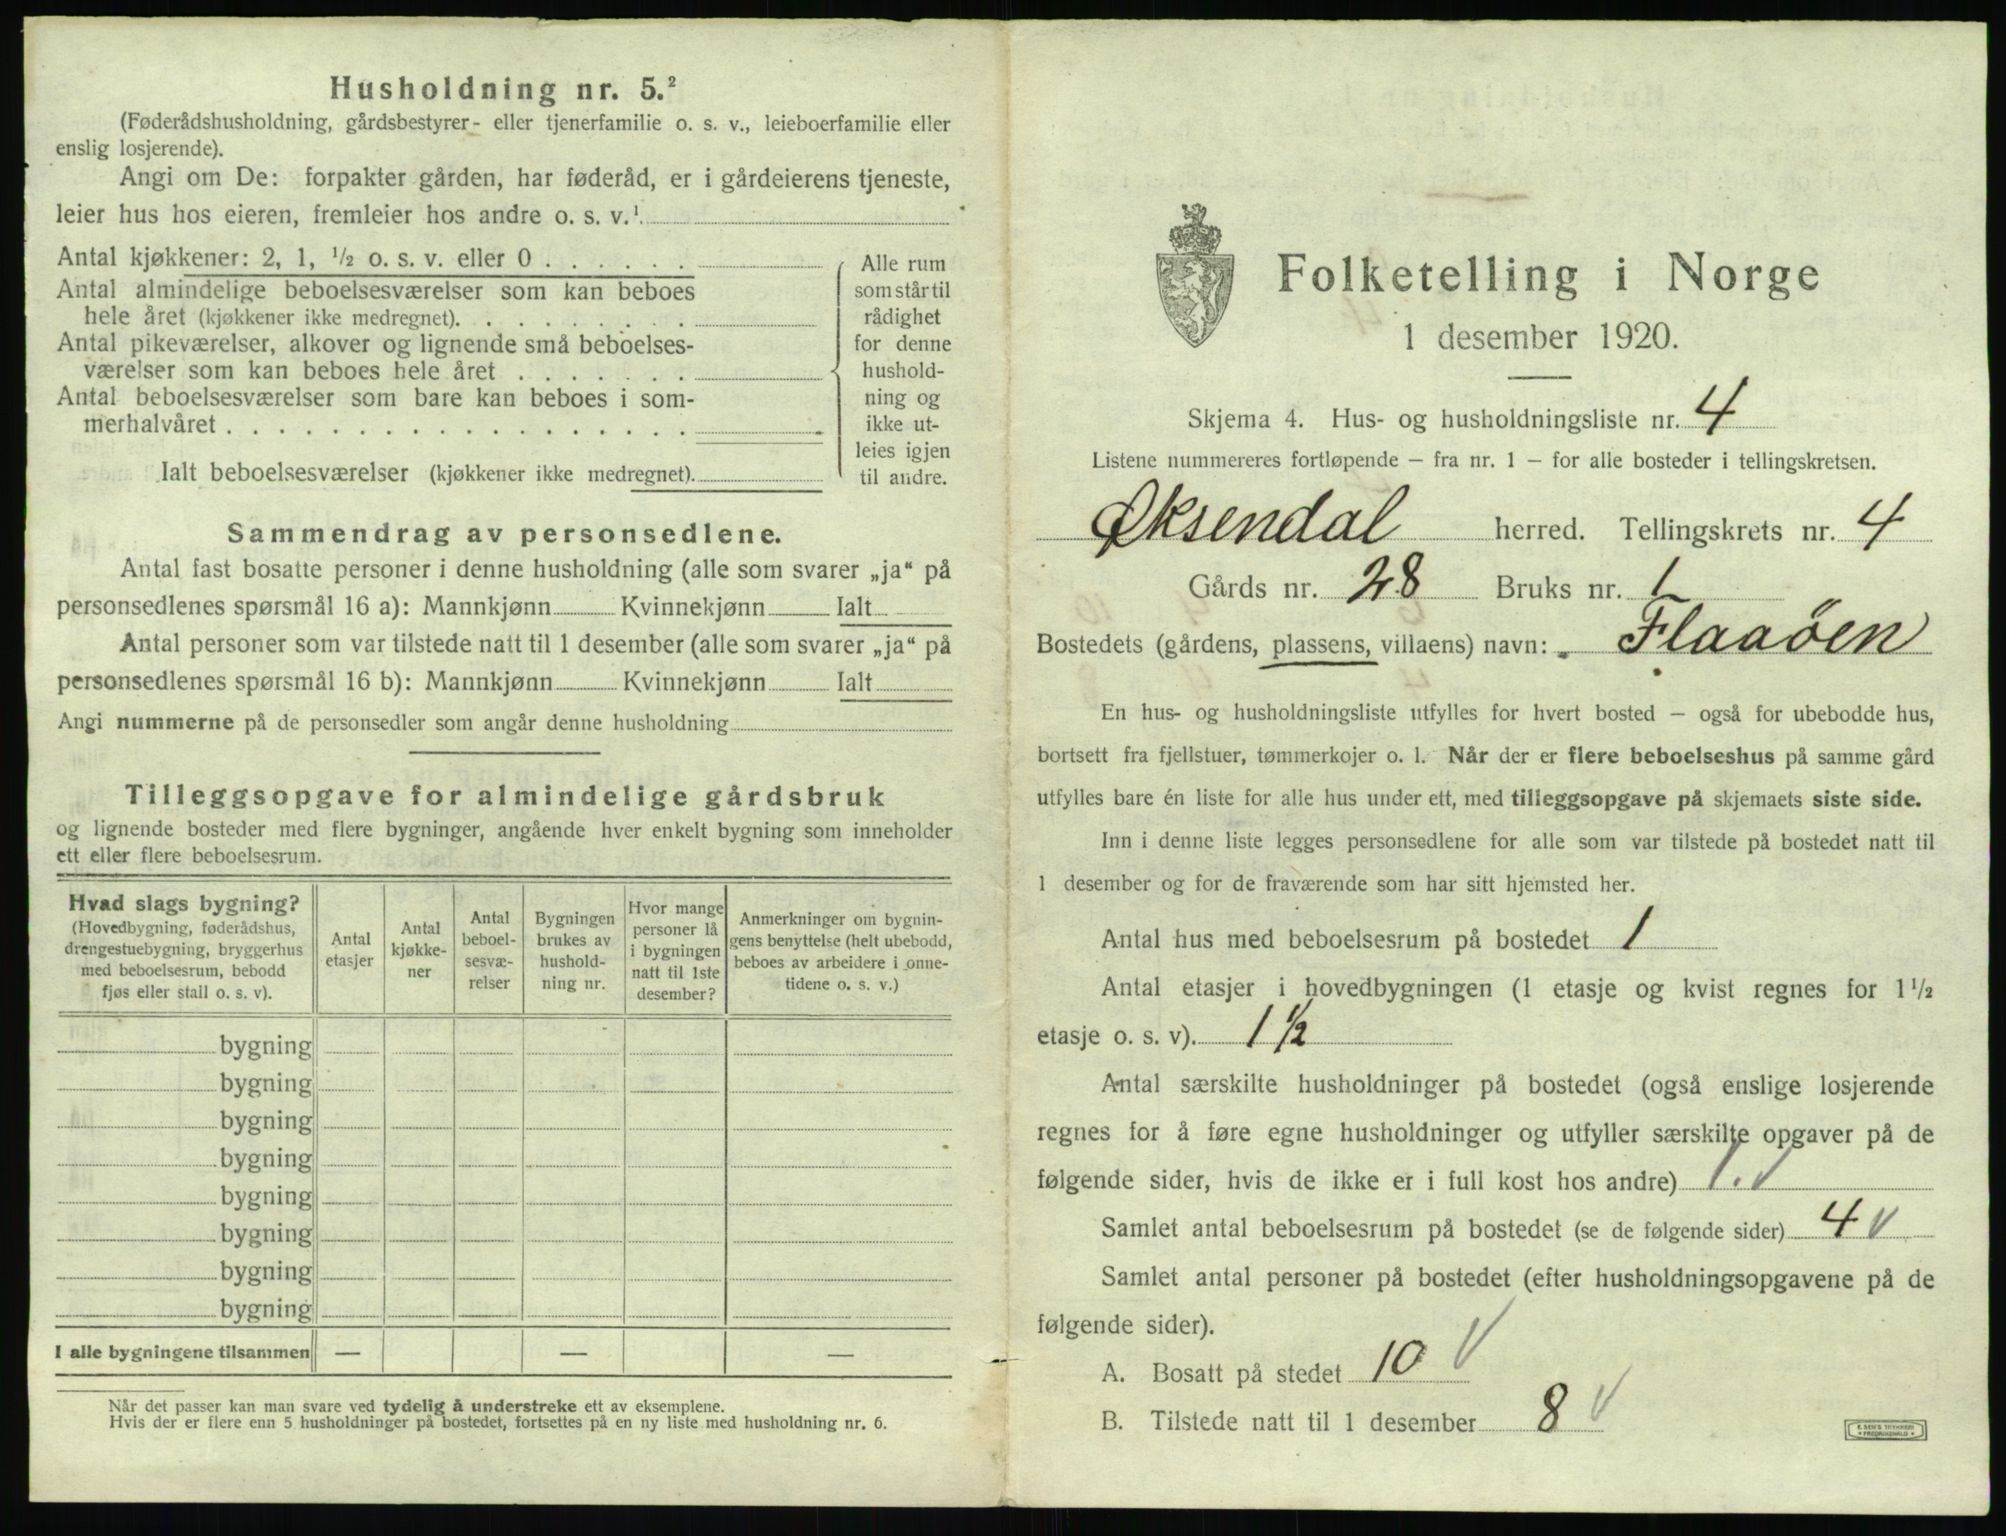 Husholdning nr. 5.²
(Føderådshusholdning, gårdsbestyrer- eller tjenerfamilie o. s. v., leieboerfamilie eller
enslig losjerende).
Angi om De: forpakter gården, har føderåd, er i gårdeierens tjeneste,
leier hus hos eieren, fremleier hos andre o. s. v.¹
Antal kjøkkener: 2, 1, ½ o. s. v. eller 0 . . . . . .
Antal almindelige beboelsesværelser som kan beboes
hele året (kjøkkener ikke medregnet). . . . . . . . .
Antal pikeværelser, alkover og lignende små beboelses-
værelser som kan beboes hele året . . . . . . .
Antal beboelsesværelser som bare kan beboes i som-
merhalvåret . . . . . . . . . . . . . . . . . .
Ialt beboelsesværelser (kjøkkener ikke medregnet).
Alle rum
som står til
rådighet
for denne
hushold-
ning og
ikke ut-
leies igjen
til andre.
Sammendrag av personsedlene.
Antal fast bosatte personer i denne husholdning (alle som svarer „ja“ på
personsedlenes spørsmål 16 a): Mannkjønn Kvinnekjønn Ialt
Antal personer som var tilstede natt til 1 desember (alle som svarer „ja“ på
personsedlenes spørsmål 16 b): Mannkjønn Kvinnekjønn Ialt
Angi nummerne på de personsedler som angår denne husholdning
Tilleggsopgave for almindelige gårdsbruk
og lignende bosteder med flere bygninger, angående hver enkelt bygning som inneholder
ett eller flere beboelsesrum.
Hvad slags bygning?
(Hovedbygning, føderådshus,
drengestuebygning, bryggerhus
med beboelsesrum, bebodd
fjøs eller stall o. s. v).
Antal
etasjer
Antal
kjøkke-
ner
Antal
beboel-
sesvæ-
relser
Bygningen
brukes av
hushold-
ning nr.
Hvor mange
personer lå
i bygningen
natt til 1ste
desember?
Anmerkninger om bygnin-
gens benyttelse (helt ubebodd,
beboes av arbeidere i onne-
tidene o. s. v.)
bygning
bygning
bygning
bygning
bygning
bygning
bygning
bygning
I alle bygningene tilsammen — — —
Når det passer kan man svare ved tydelig å understreke ett av eksemplene.
Hvis der er flere enn 5 husholdninger på bostedet, fortsettes på en ny liste med husholdning nr. 6.
Folketelling i Norge
1 desember 1920.
Skjema 4. Hus- og husholdningsliste nr. 4
Listene nummereres fortløpende – fra nr. 1 – for alle bosteder i tellingskretsen.
Øksendal herred. Tellingskrets nr. 4
Gårds nr. 28 Bruks nr. 1
Bostedets (gårdens, plassens, villaens) navn: Flaaøen
En hus- og husholdningsliste utfylles for hvert bosted – også for ubebodde hus,
bortsett fra fjellstuer, tømmerkojer o. l. Når der er flere beboelseshus på samme gård
utfylles bare én liste for alle hus under ett, med tilleggsopgave på skjemaets siste side.
Inn i denne liste legges personsedlene for alle som var tilstede på bostedet natt til
1 desember og for de fraværende som har sitt hjemsted her.
Antal hus med beboelsesrum på bostedet 1
Antal etasjer i hovedbygningen (1 etasje og kvist regnes for 1½
etasje o. s. v). 1½
Antal særskilte husholdninger på bostedet (også enslige losjerende
regnes for å føre egne husholdninger og utfyller særskilte opgaver på de
følgende sider, hvis de ikke er i full kost hos andre) 1.
Samlet antal beboelsesrum på bostedet (se de følgende sider) 4
Samlet antal personer på bostedet (efter husholdningsopgavene på de
følgende sider).
A. Bosatt på stedet 10
B. Tilstede natt til 1 desember 8